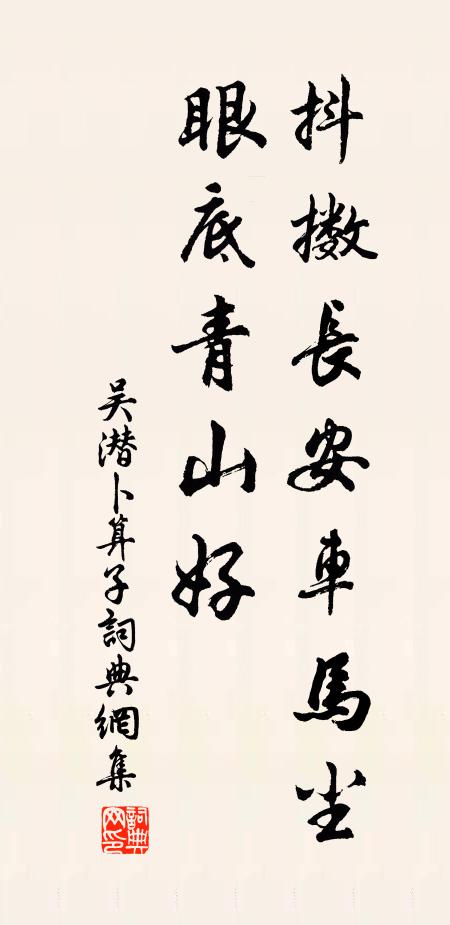 抖擞長安車馬尘
眼底青山好
吴潜卜算子詞典網集
詞典网印